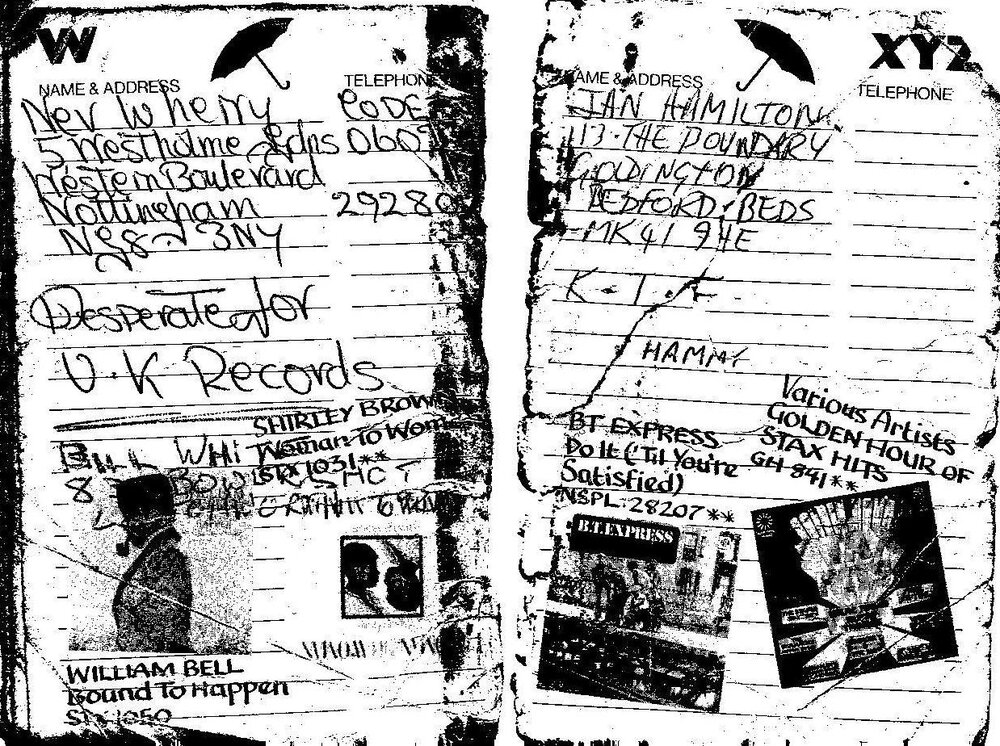 W
NAME & ADDRESS TELEPHON
Nev Wherry CODE
5 Westholme Gdns 0602
Western Boulevard
Nottingham 29280
NG8 3NY
Desperate for
U.K Records
SHIRLEY BROWN
Woman To Wom
STX 1031**
BILL WHI
8
WILLIAM BELL
Bound To Happen
STX 1050
XYZ
NAME & ADDRESS TELEPHONE
IAN HAMILTON
113 THE BOUNDARY
GOLDINGTON
BEDFORD, BEDS
MK41 9HE
K.T.F
HAMMY
BT EXPRESS
Do It ('Til You're
Satisfied)
NSPL 28207**
B.T. EXPRESS
Various Artists
GOLDEN HOUR OF
STAX HITS
GH 841**